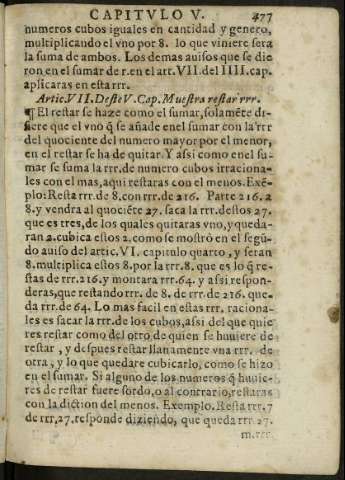 CAPITVLO V. 477
numeros cubos iguales en cantidad y genero,
multiplicando el vno por 8. lo que viniere sera
la suma de ambos. Los demas auisos que se die
ron en el sumar de r. en el art. VII. del IIII. cap.
aplicaras en esta rrr.
Artic. VII. Deste V. Cap. Muestra restar rrr.
¶ El restar se haze como el sumar, solamẽte di-
fiere que el vno q̃ se añade enel sumar con la rrr
del quociente del numero mayor por el menor,
en el restar se ha de quitar. Y assi como enel su-
mar se suma la rrr. de numero cubos irraciona-
les con el mas, aqui restaras con el menos. Exẽ-
plo: Resta rrr. de 8. con rrr. de 216. Parte 216. a
8. y vendra al quociẽte 27. saca la rrr. destos 27.
que es tres, de los quales quitaras vno, y queda-
ran 2. cubica estos 2. como se mostrò en el segũ-
do auiso del artic. VI. capitulo quarto, y seran
8. multiplica estos 8. por la rrr. 8. que es lo q̃ res-
tas de rrr. 216. y montara rrr. 64. y assi respon-
deras, que restando rrr. de 8. de rrr. de 216. que-
da rrr. de 64. Lo mas facil en estas rrr. raciona-
les es sacar la rrr. de los cubos, assi del que quie
res restar como del otro de quien se huuiere de
restar, y despues restar llanamente vna rrr. de
otra, y lo que quedare cubicarlo, como se hizo
en el sumar. Si alguno de los numeros q̃ huuie-
res de restar fuere sordo, o al contrario, restaras
con la diction del menos. Exemplo. Resta rrr. 7
de rrr. 27. responde diziendo, que queda rrr. 27.
m. rrr.